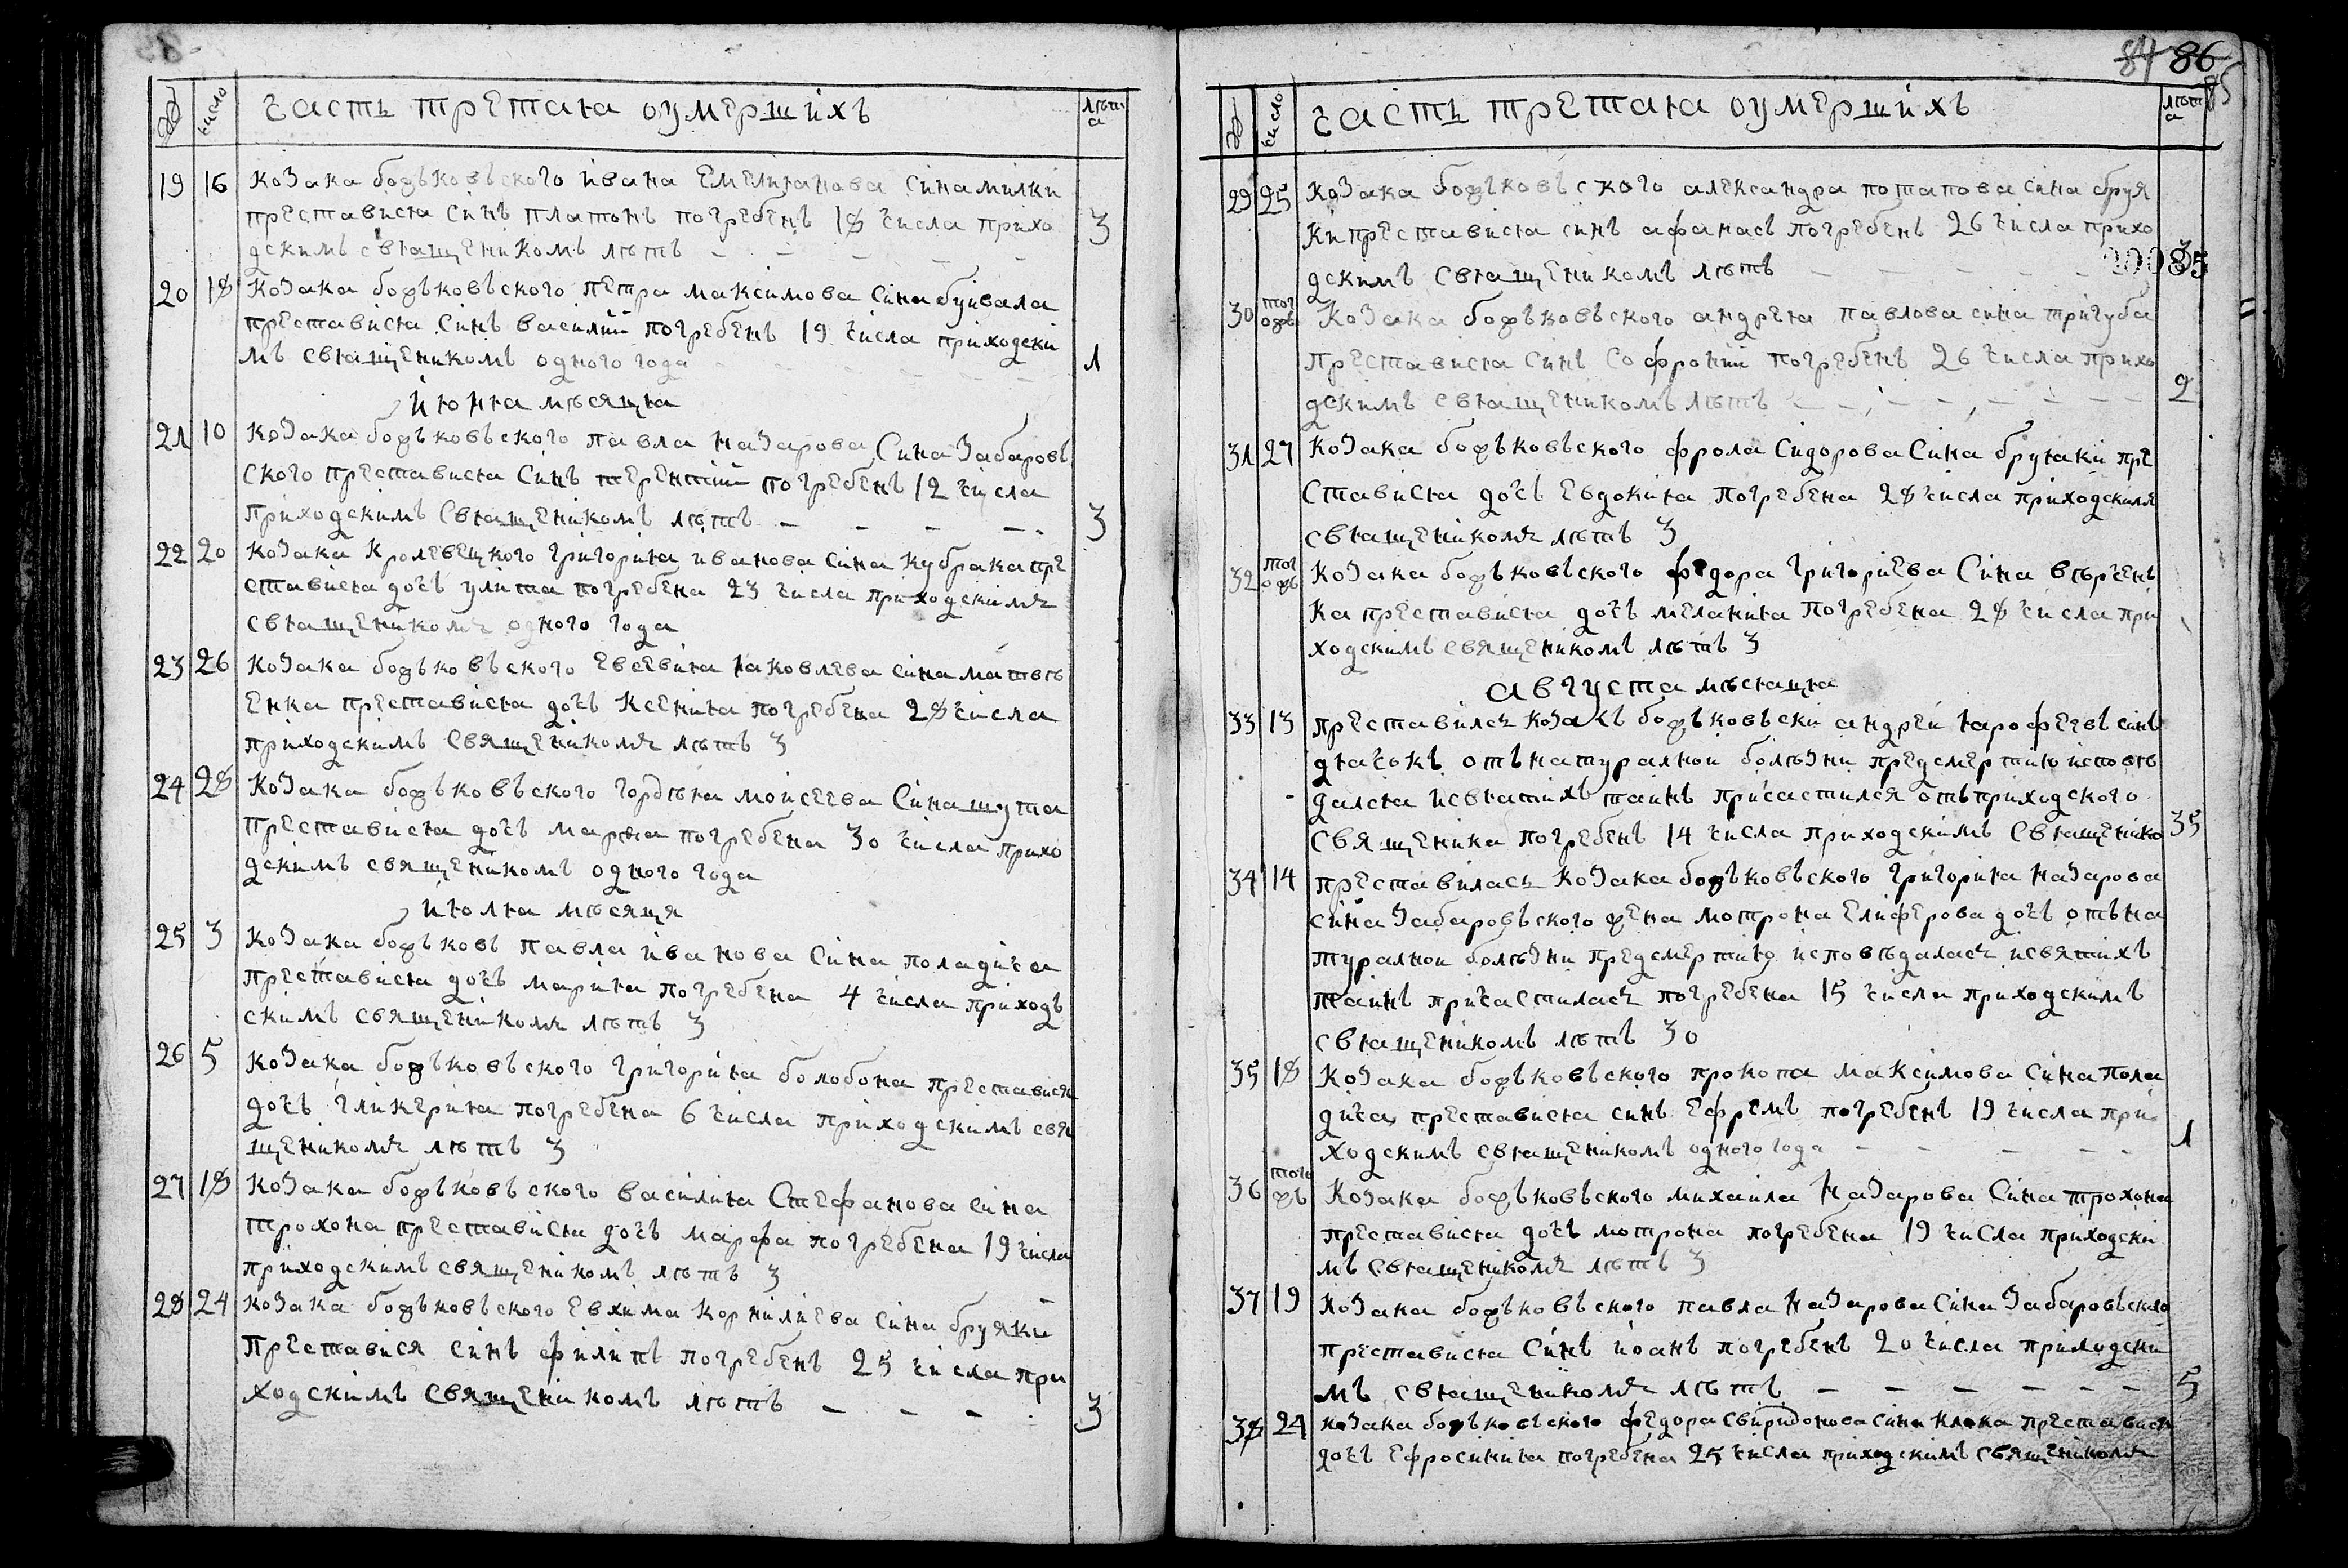 Часть третая оумершихъ
число
лѣта
19 16 Козака божковского ивана Емелиянова Сина милки
преставися Синъ платонъ погребенъ 18 числа прихо
дскимъ священикомъ лѣтъ 3
20 18 Козака божковского петра максимова Сина буивала
преставися Синъ василий погребенъ 19 числа приходски
мъ священикомъ одного года 1
июня мѣсяца
21 10 Козака божковского павла назарова Сина Забаровъ
ского преставися Синъ терентий погребенъ 12 числа
приходскимъ Священикомъ лѣтъ 3
22 20 Козака Кролевецкого григория иванова Сина кубрака пре
ставися дочъ улита погребена 23 числа приходскимъ
священикомъ одного года
23 26 Козака божковского Евсевия яковлева Сина матвѣ
Енка преставися дочъ Ксения погребена 28 числа
приходскимъ Священикомъ лѣтъ 3
24 28 Козака божковского гордѣя моисеева Сина шута
преставися дочъ марѳа погребена 30 числа прихо
дскимъ священикомъ одного года
июля мѣсяця
25 3 Козака божковъ павла иванова Сина поладича
преставися дочъ мария погребена 4 числа приходъ
скимъ священикомъ лѣтъ 3
26 5 Козака божковского григория болобона преставися
дочъ гликерия погребена 6 числа приходскимъ свя
щеникомъ лѣтъ 3
27 18 Козака божковского василия Стефанова Сина
трохона преставися дочъ марфа погребена 19 числа
приходскимъ священикомъ лѣтъ 3
28 24 козака божковского Евхима Корнилиева Сина бруяки
преставися Синъ филипъ погребенъ 25 числа при
ходскимъ Священикомъ лѣтъ 3
84 86
85
Часть третая оумершихъ
число
лѣта
29 25 Козака божковского александра потапова Сина бруя
Ки преставися синъ афанасъ погребенъ 26 числа прихо
дскимъ Священикомъ лѣтъ
30 тог ожъ Козака божковского андрея павлова сина тригуба
преставися Синъ Софроний погребенъ 26 числа прихо
дскимъ священикомъ лѣтъ 2
31 27 Козака божковского фрола Сидорова Сина бруяки пре
Ставися дочъ Евдокия погребена 28 числа приходскимъ
священикомъ лѣтъ 3
32 тог ожъ Козака божковского федора григориева Сина вѣрченъ
Ка преставися дочъ мелания погребена 28 числа при
ходскимъ священикомъ лѣтъ 3
августа мѣсяця
33 13 преставился козакъ божковски андрей ярофеевъ синъ
дячокъ отъ натуралнои болѣзни предсмертию исповѣ
дался исвятихъ таинъ причастился отъ приходского
священика погребенъ 14 числа приходскимъ Священико 35
34 14 преставилася Козака божковского григория назарова
сина Забаровского жена мотрона Елиферова дочъ отъ на
туралнои болѣзни предсмертию исповѣдалася исвятихъ
таинъ причастилася погребена 15 числа приходскимъ
священикомъ лѣтъ 30
35 18 Козака божковского прокопа максимова Сина пола
дича преставися синъ Ефремъ погребенъ 19 числа при
ходскимъ священикомъ одного года 1
36 того жъ Козака божковского михаила Назарова Сина трохона
преставися дочъ мотрона погребена 19 числа приходски
мъ священикомъ лѣтъ 3
37 19 Козака божковского павла Назарова Сина Забаровского
преставися Синъ иоанъ погребенъ 20 числа приходски
мъ священикомъ лѣтъ 5
38 24 козака божковского федора Свиридонова Сина клока преставися
дочъ Ефросиния погребена 25 числа приходскимъ священикомъ